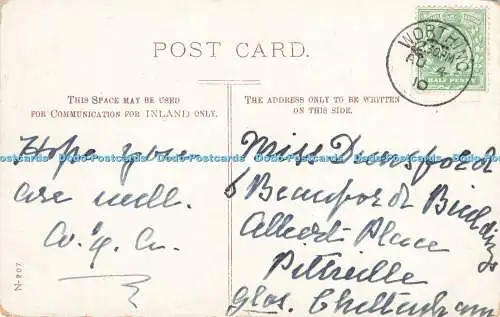 POST CARD.
WORTHING
AU 4
10
HALF PENNY
THIS SPACE MAY BE USED
FOR COMMUNICATION FOR INLAND ONLY.
THE ADDRESS ONLY TO BE WRITTEN
ON THIS SIDE.
Hope you
are well.
Miss Dunsford
6 Beaufort Buildings
Albert Place
Pittville
Glos. Cheltenham
N-907
Dodo-Postcards Dodo-Postcards Dodo-Postcards